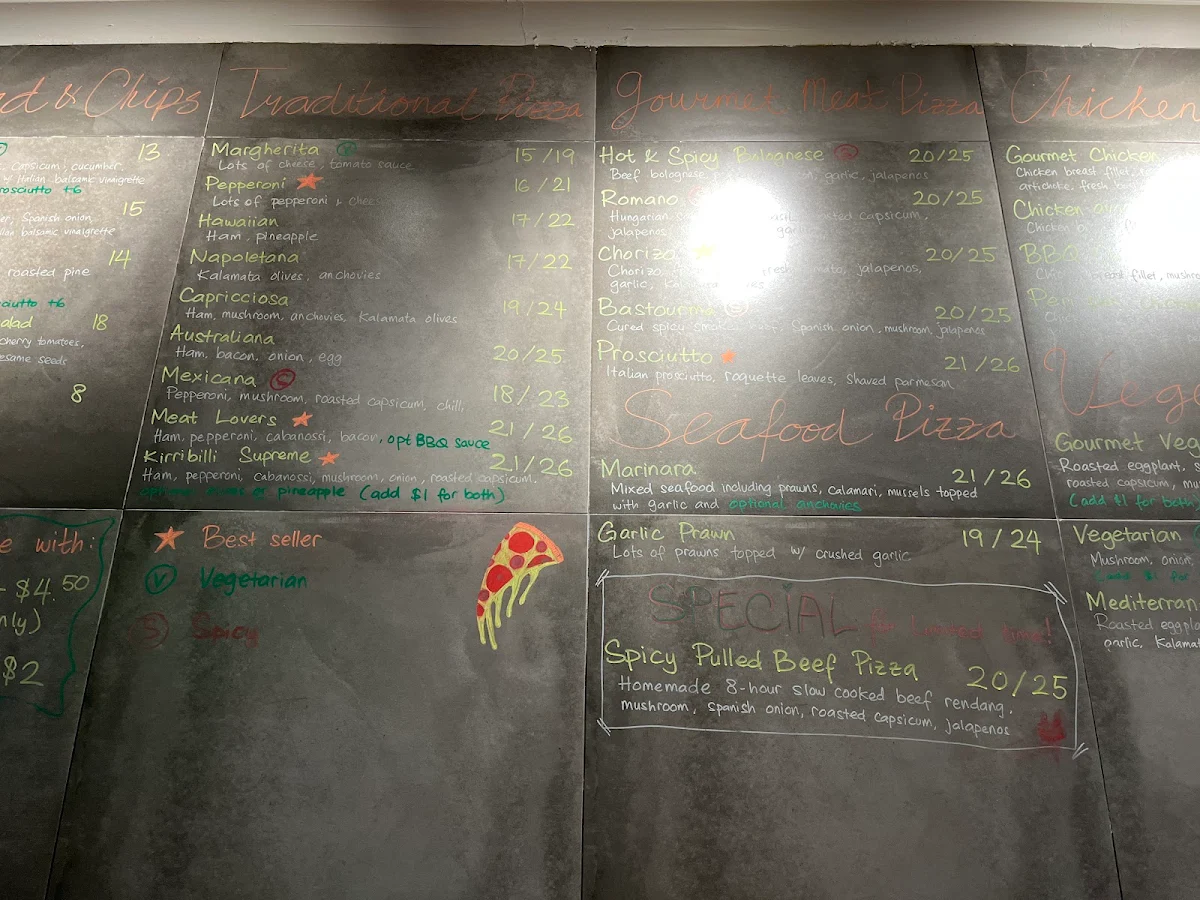 & Chips
Capsicum, cucumber, 13
Italian balsamic vinaigrette
rosciutto +6
15
Spanish onion,
balsamic vinaigrette
14
roasted pine
sciutto +6
alad 18
cherry tomatoes,
esame seeds
8
e with:
$4.50
nly)
$2
Traditional Pizza
Margherita V 15/19
Lots of cheese, tomato sauce
Pepperoni 16/21
Lots of pepperoni & chees
Hawaiian 17/22
Ham, pineapple
Napoletana 17/22
Kalamata olives, anchovies
Capricciosa 19/24
Ham, mushroom, anchovies, Kalamata olives
Australiana 20/25
Ham, bacon, onion, egg
Mexicana S 18/23
Pepperoni, mushroom, roasted capsicum, chill,
Meat Lovers 21/26
Ham, pepperoni, cabanossi, bacon, opt BBQ sauce
Kirribilli Supreme 21/26
Ham, pepperoni, cabanossi, mushroom, onion, roasted capsicum.
of pineapple (add $1 for both)
Best seller
V Vegetarian
S Spicy
Gourmet Meat Pizza
Hot & Spicy Bolognese S 20/25
Beef bolognese, garlic, jalapenos
Romano 20/25
Hungarian capsicum,
jalapenos,
Chorizo 20/25
Chorizo, jalapenos,
garlic,
Bastourma S 20/25
Cured spicy smoked Spanish onion, mushroom, jalapenos
Prosciutto 21/26
Italian prosciutto, roquette leaves, shaved parmesan
Seafood Pizza
Marinara 21/26
Mixed seafood including prawns, calamari, mussels topped
with garlic and optional anchovies
Garlic Prawn 19/24
Lots of prawns topped w/ crushed garlic
SPECIAL for limited time!
Spicy Pulled Beef Pizza 20/25
Homemade 8-hour slow cooked beef rendang.
mushroom, spanish onion, roasted capsicum, jalapenos
Chicken
Gourmet Chicken
Chicken breast fillet,
artichoke, fresh
Chicken
Chicken
BBQ
fillet, mushroo
Veg
Gourmet Veg
Roasted eggplant, s
roasted capsicum, mu
(add $1 for both
Vegetarian
Mushroom, onion,
Mediterran
Roasted eggpla
garlic, Kalamat